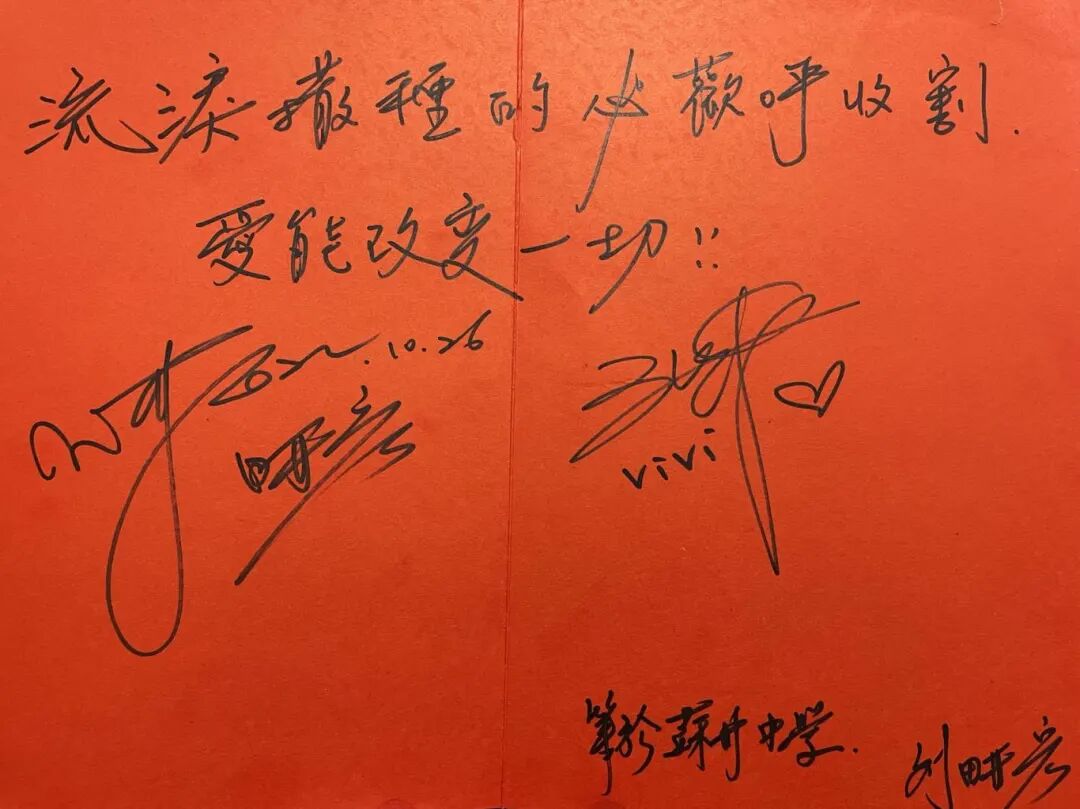 流淚撒種的必歡呼收割.
愛能改变一切!!
2022.10.26
畊宏
vivi
筆於蘇州中学.
刘畊宏